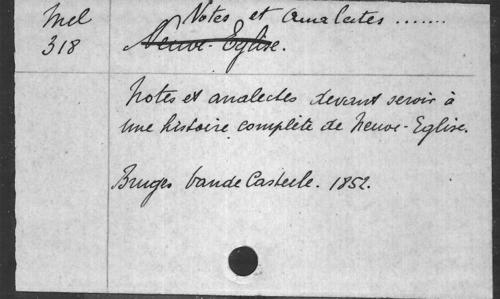 Mel Notes et analectes .......
318 Neuve-Eglise.
Notes et analectes devant servir à
une histoire complète de Neuve-Eglise.
Bruges Vande Casteele. 1852.